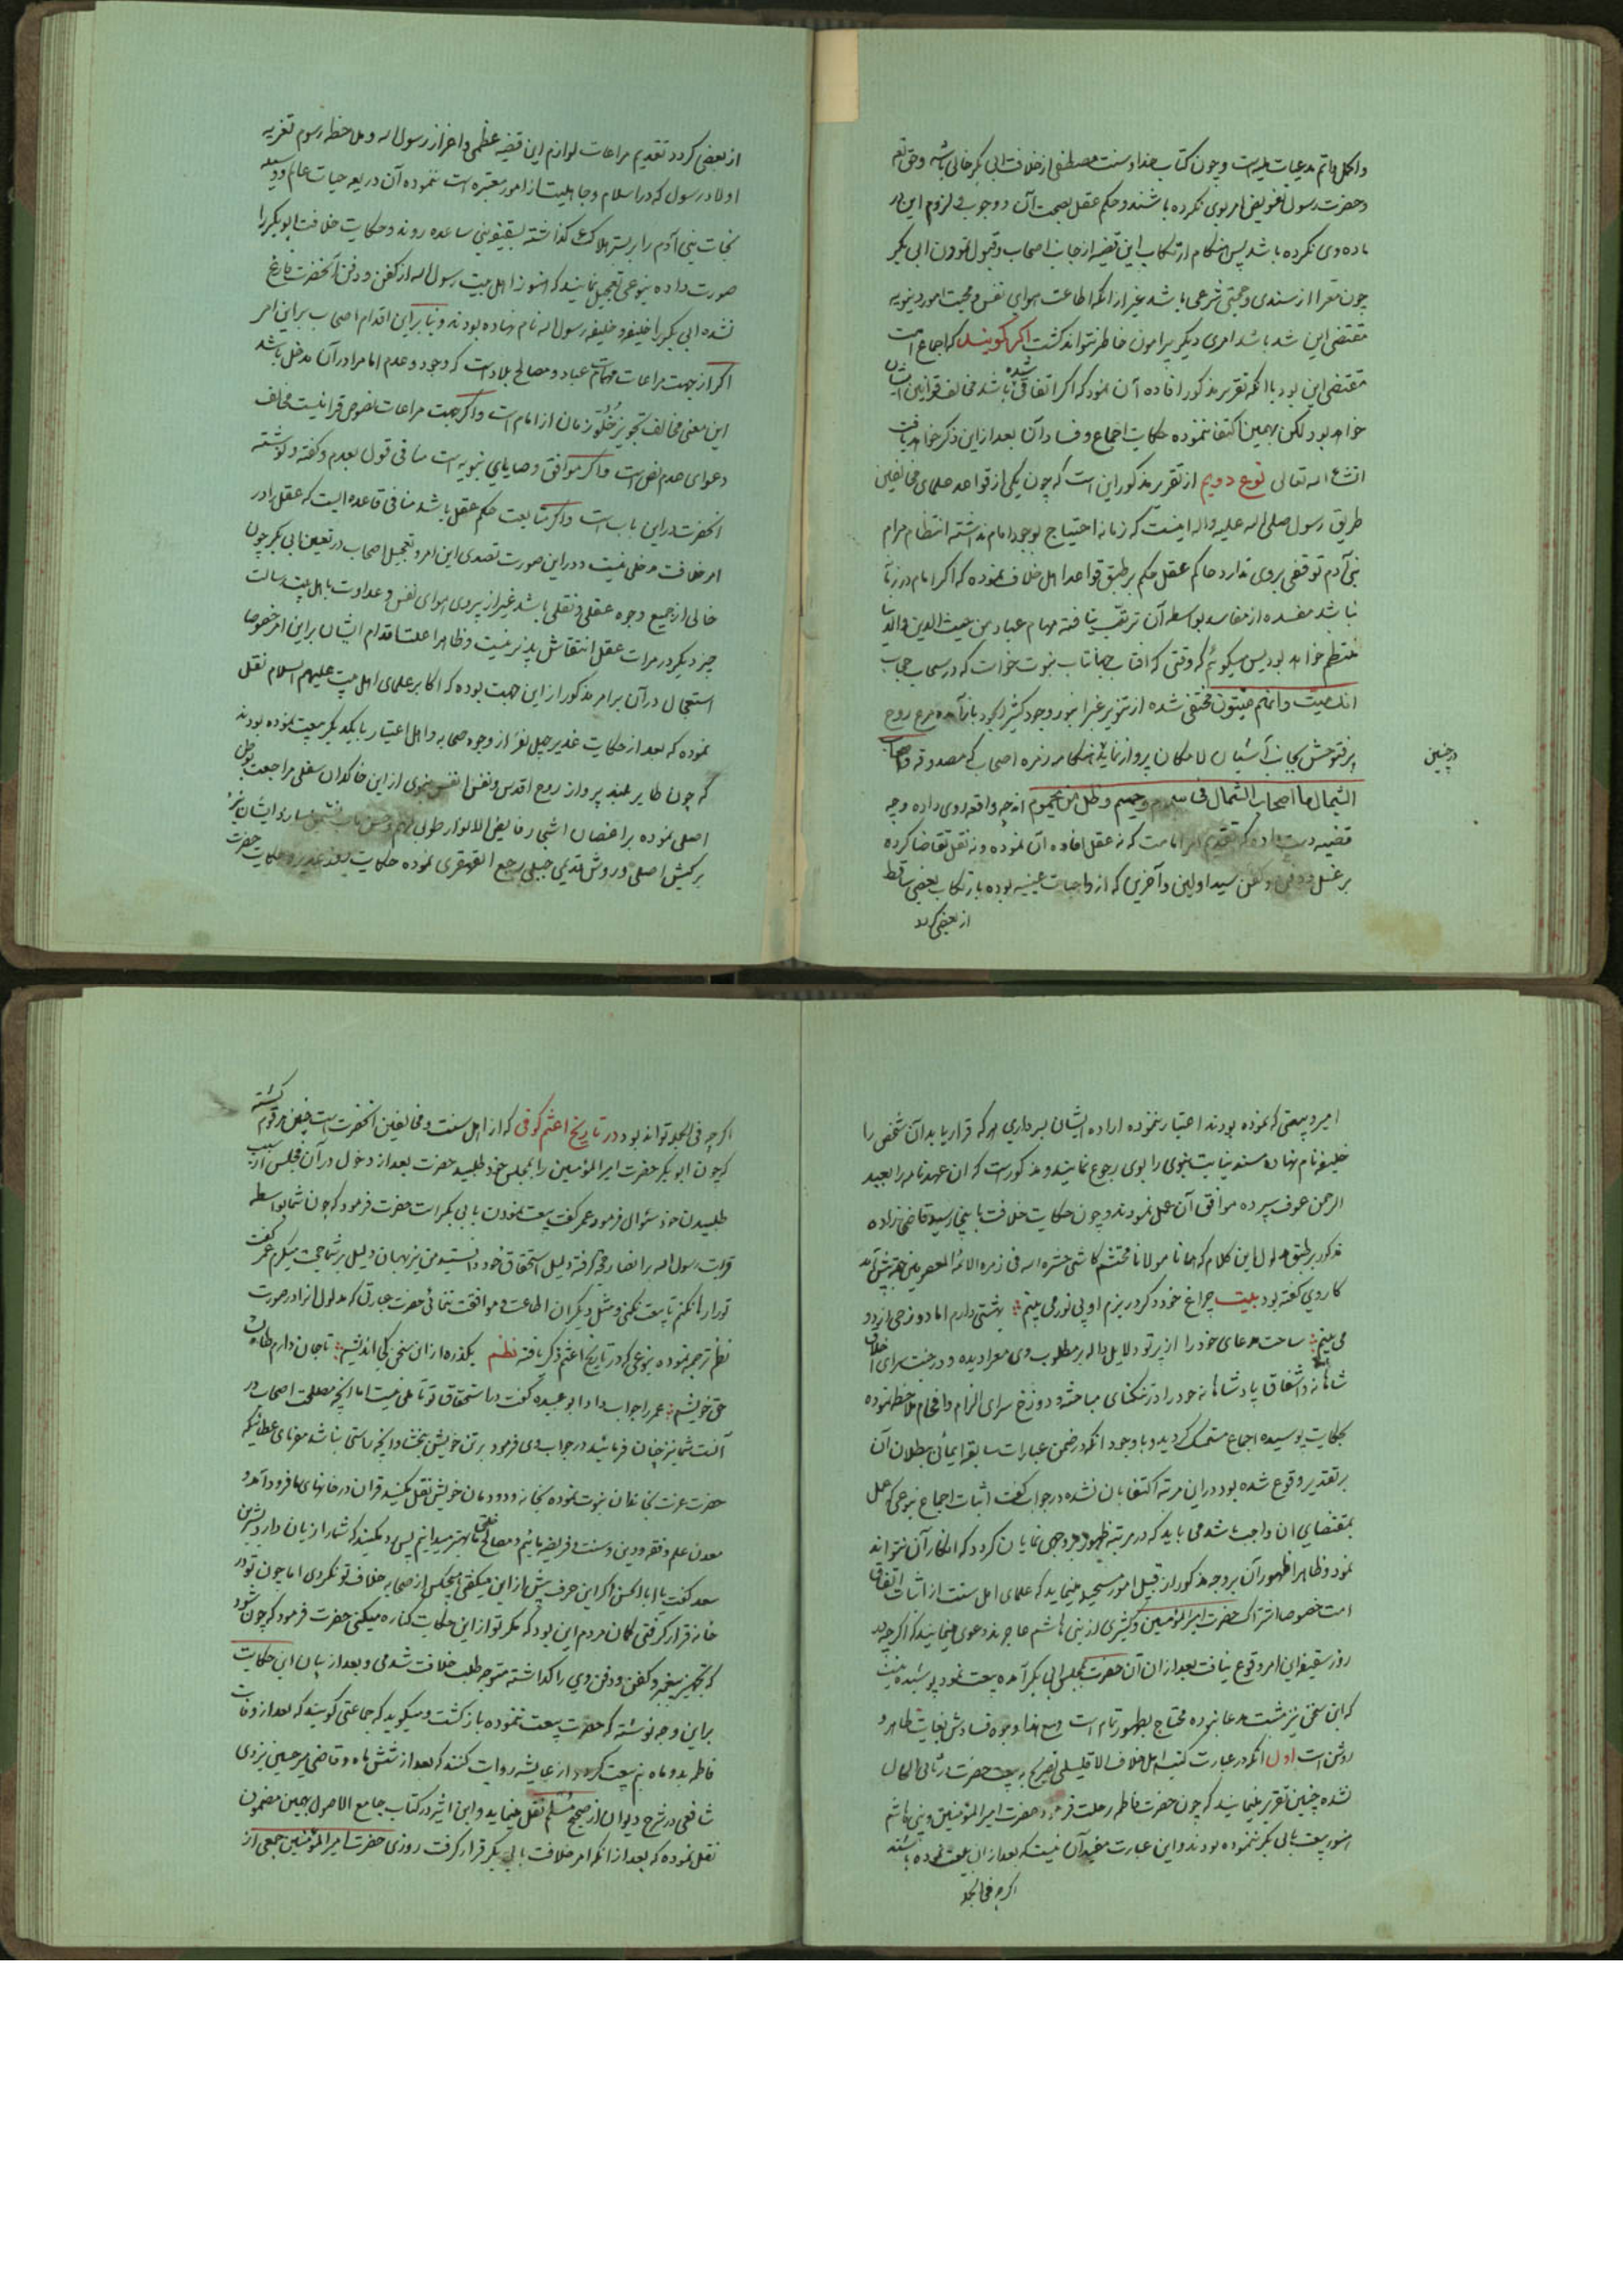 واکمل واتم مدعیات است و چون کتاب خدا و سنت مصطفی از خلافت ابی بکر خالی باشد و حق تعه
و حضرت رسول تفویض امر بوی نکرده باشند و حکم عقل بصحت آن و وجوب و لزوم این در
ماده وی نکرده باشد پس هنکام ارتکاب این قضیه از جانب اصحاب و قبول نمودن ابی بکر
چون معرا از سندی و حجتی شرعی باشد غیر از انکه اطاعت هوای نفس و محبت امور دنیویه
مقتضی این شد باشد امری دیکر پیرامون خاطر نتواند کشت اکر کویند که اجماع امت
مقتضی این بود با انکه تقریر مذکور افاده آن نمود که اکر اتفاقی شده باشد مخالف قوانین ایشان
خواهد بود لکن بهمین اکتفا ننموده حکایت اجماع و فساد آن بعد از این ذکر خواهد یافت
انشاء اله تعالی نوع دویم از تقریر مذکور این است که چون یکی از قواعد علمای مخالفین
طریق رسول صلی اله علیه واله اینست که زمانه احتیاج بوجود امام نداشته انتظام مرام
بنی آدم توقفی بروی ندارد حاکم عقل حکم بر طبق قواعد اهل خلاف نموده که اکر امام در زمان
نباشد مفسده از مفاسد بواسطه آن ترتب نیافته مهام عباد من حیث الدین والدنیا
منتظم خواهد بود پس میکوئم که وقتی که افتاب جهانتاب نبوت خواست که در سحاب حجاب
انک میت وانهم میتون مختفی شده از تنویر غبرا بنور وجود کثیر الجود باز آمده مرغ روح
پرفتوحش بجانب آشیان لامکان پرواز نماید هنکامه زمره اصحاب که مصدوقه واصحاب
درچنین
الشمال ما اصحاب الشمال فی سموم وحمیم وظل من یحموم اند چه واقعه روی داده و چه
قضیه دست داده که تقدیم امر امامت که نه عقل افاده آن نموده و نه نقل تقاضا کرده
بر غسل و دفن و کفن سید اولین و آخرین که از واجبات عینیه بوده با رتکاب بعضی ساقط
از بعضی کردد
از بعضی کردد تقدیم مراعات لوازم این قضیه عظمی و احراز رسول اله و ملاحظه رسوم تعزیه
اولاد رسول که در اسلام و جاهلیت از امور معتبره است ننموده آن ذریعه حیات عالم و وسیله
نجات بنی آدم را بر بستر هلاکت کذاشته بسقیفه بنی ساعده روند و حکایت خلافت ابوبکر را
صورت داده بنوعی تعجیل نمایند که هنوز اهل بیت رسول اله از کفن و دفن آنحضرت فارغ
نشده ابی بکر را خلیفه و خلیفه رسول اله نام نهاده بودند و بنا براین اقدام اصحاب براین امر
اکر از جهت مراعات مهمات عباد و مصالح بلاد است که وجود و عدم امام را در آن مدخل باشد
این معنی مخالف تجویز خلو زمان از امام است و اکر جهت مراعات نصوص قرانیست مخالف
دعوای عدم نص است و اکر موافق وصایای نبویه است منافی قول بعدم وکفته و نوشته
انحضرت در این باب است و اکر متابعت حکم عقل باشد منافی قاعده ایست که عقل را در
امر خلافت مدخلی نیست و در این صورت تصدی این امر و تعجیل اصحاب در تعیین ابی بکر چون
خالی از جمیع وجوه عقلی و نقلی باشد غیر از پیروی هوای نفس و عداوت با اهل بیت رسالت
چیز دیکر در مرات عقل انتقاش پذیر نیست و ظاهرا علت اقدام ایشان براین امر خصوصا
استعجال در آن برامر مذکور از این جهت بوده که اکابر علمای اهل بیت علیهم السلام نقل
نموده که بعد از حکایت غدیر چهل نفر از وجوه صحابه و اهل اعتبار با یکدیکر بیعت نموده بودند
که چون طایر بلند پرواز روح اقدس و نفس انفس نبوی از این خاکدان سفلی مراجعت بوطن
اصلی نموده بر اغصان اشجار فایض الانوار طوبی لهم وحسن ماب نشیمن سازد ایشان نیز
برکیش اصلی و روش قدیمی جبلی رجع القهقری نموده حکایت روز غدیر و حکایت حضرت
امیر و بیعتی که نموده بودند اعتبار ننموده اراده ایشان بسرداری هر که قرار یابد آن شخص را
خلیفه نام نهاده مسند نیابت نبوی را بوی رجوع نمایند و مذکور است که ان عهدنامه را بعبد
الرحمن عوف سپرده موافق آن عمل نمودند و چون حکایت خلافت باینجا رسید قاضی زاده
مذکور بر طبق مدلول این کلام که همانا مولانا محتشم کاشی حشره اله فی زمره الائمة المعصومین
کاروی کفته بود بیت چراغ خود دکر در بزم او بی نور می بینم بهشتی دارم اما دوزخی از دور
می بینم ساحت مدعای خود را از پرتو دلایل داله بر مطلوب وی معرا دیده و در جنت سرای اخلاق
شاهانه و اشفاق پادشاهانه خود را در تنکنای مباحثه و دوزخ سرای الزام و افحام ملاحظه نموده
بحکایت پوسیده اجماع متمسک کردید و با وجود انکه در ضمن عبارات سابقه ایمائی ببطلان آن
بر تقدیر وقوع شده بود در این مرتبه اکتفا بان نشده در جواب کفت اثبات اجماع بنوعی که عمل
بمقتضای ان واجب باشد می باید که در مرتبه ظهور بوجهی نمایان کردد که انکار آن نتواند
نمود و ظاهرا ظهور آن بروجه مذکور از قبیل امور مستحیله مینماید که علمای اهل سنت از اثبات اتفاق
امت خصوصا اشتراک حضرت امیر المؤمنین و کثیری از بنی هاشم عاجزند و دعوی مینمایند که اکرچه در
روز سقیفه این امر وقوع نیافت بعد از ان آن حضرت بمجلس ابی بکر آمده بیعت نمود پوشیده نیست
که این سخن نیز مثبت مدعا نبوده محتاج بظهور تمام است و مع هذا وجوه فسادش بغایت ظاهر و
روشن است اول انکه در عبارت کتب اهل خلاف الا قلیلی تصریح به بیعت حضرت در ثانی الحال
نشده چنین تقریر مینمایند که چون حضرت فاطمه رحلت فرمود حضرت امیر المؤمنین و بنی هاشم
هنوز بیعت بابی بکر ننموده بودند و این عبارت مفید آن نیست که بعد از ان بیعت نموده باشند
اکرچه فی الجمله
اکرچه فی الجمله تواند بود در تاریخ اعثم کوفی که از اهل سنت و مخالفین انحضرت است چنین مرقوم کشته
که چون ابوبکر حضرت امیر المؤمنین را بمجلس خود طلبید حضرت بعد از دخول در آن مجلس از سبب
طلبیدن خود سئوال فرمود عمر کفت بیعت نمودن بابی بکر است حضرت فرمود که چون شما بواسطه
قرابت رسول اله بر انصار حجة کرفته دلیل استحقاق خود دانستید من نیز بهمان دلیل بر شما حجت میکیرم عمر کفت
تو را رها نکنم تا بیعت نکنی و مثل دیکران اطاعت و موافقت ننمائی حضرت عبارتی که مدلول انرا در صورت
نظم ترجمه نموده بنوعی که در تاریخ اعثم ذکر یافته نظم بکذر از این سخن کی اندیشم تا جان دارم طالب
حق خویشم عمر را جواب داد ابو عبیده کفت در استحقاق تو تأملی نیست اما انچه مصلحت اصحاب در
آنست شما نیز چنان فرمائید در جواب وی فرمود بر تن خویش ببخشاد انچه راستی نباشد مفرمای عطائیکه
حضرت عزت بخاندان نبوت نموده بخانه و دودمان خویش نقل مکنید قران در خانهای ما فرود آمد و
معدن علم و فقه و دین و سنت و فریضه مائیم و مصالح خلق ما بهتر میدانیم پس بد مکنید که شما را زیان دارد بشیر بن
سعد کفت یا ابا الحسن اکر این حرف پیش از این میکفتی هیچکس از صحابه خلاف تو نکردی اما چون تو در
خانه قرار کرفتی کمان مردم این بود که مکر تو از این حکایت کناره میکنی حضرت فرمود که چون شود
که تجهیز پیغمبر و کفن و دفن وی را کذاشته متوجه طلب خلافت شدمی و بعد از بیان این حکایت
براین وجه نوشته که حضرت بیعت ننموده باز کشت و میکوید که جماعتی کویند که بعد از وفات
فاطمه بدو ماه نیم بیعت کرد و از عایشه روایت کنند که بعد از شش ماه و قاضی میر حسین یزدی
شافعی در شرح دیوان از صحیح مسلم نقل مینماید و ابن اثیر در کتاب جامع الاصول بهمین مضمون
نقل نموده که بعد از انکه امر خلافت بابی بکر قرار کرفت روزی حضرت امیر المؤمنین جمعی از